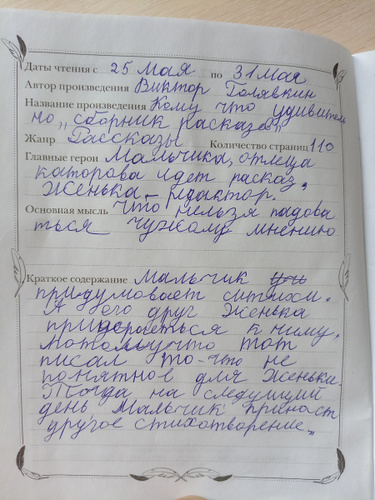 Даты чтения с 25 Мая по 31 Мая
Автор произведения Виктор Голявкин
Название произведения Кому что удивитель
но „ сборник расказов"
Жанр Рассказы Количество страниц 110
Главные герои Мальчика, отлица
каторова идет расказ,
Женька – рдактор.
Основная мысль Что нельзя падова
ться чужому мнению
Краткое содержание Мальчик
придумовает ситихи.
А его друг Женька
придераеться к ниму.
Мотомучто тот
писал то-что не
понятнов для Женьки.
Тогда на следующий
день Мальчик принаст
другое стихотворение.